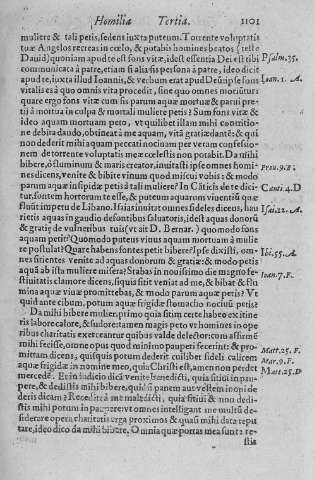 Homilia Tertia. 1101
muliere & tali petis, sedens iuxta puteum. Torrente voluptatis
tuæ Angelos recreas in cœlo, & potabis homines beatos (teste
Dauid) quoniam apud te est fons vitæ, id est essentia Dei est tibi Psalm. 35.
communicata à patre, etiam si alia sis persona à patre, ideo dicit
apud te, iuxta illud Ioannis, & verbum erat apud Deū: ipse fons Ioan. 1. A.
vitalis es à quo omnis vita procedit, sine quo omnes moriuntur:
quare ergo fons vitæ cum sis parum aquæ mortuæ & parui pre-
tij à mortua in culpa & mortali muliere petis? Sum fons vitæ &
ideo aquam mortuam peto, vt quilibet illam mihi contritio-
ne debita dando, obtineat à me aquam, vitā gratiæ dantē: & qui
non dederit mihi aquam peccati nocinam per veram confessio-
nem de torrente voluptati meæ cœlestis non potabit. Da mihi
bibere, ô fluminum & maris creator, inuitasti ipse omnes homi-
nes dicens, venite & bibite vinum quod miscui vobis: & modo Prou. 9. B.
parum aquæ insipidæ petis à tali muliere? In Cāticis de te dici- Cant. 4. D
tur, fontem hortorum te esse, & puteum aquarum viuentiū quæ
fluūt impetu de Libano. Isaias inuitat omnes fideles dicens, hau Isai. 12. A.
rietis aquas in gaudio de fontibus saluatoris, id est aquas donorū
& gratię de vulneribus tuis (vt ait D. Bernar.) quomodo fons
aquam petit? Quomodo puteus viuus aquam mortuam à mulie
re postulat? Quare habens fontes petit bibere? Ipse dixisti, om- Ibi. 55. A.
nes sitientes venite ad aquas donorum & gratiæ: & modo petis
aquā ab ista muliere misera? Stabas in nouissimo die magno fe- Ioan. 7. F.
stiuitatis clamore dicens, si quis sitit veniat ad me, & bibat & flu
mina aquæ viuæ promittebas, & modo parum aquæ petis? Vt
quid ante cibum, potum aquæ frigidæ stomacho nociuū petis?
Da mihi bibere mulier, primo quia sitim certe habeo ex itine
ris labore calore, & sudore: tamen magis peto vt homines in ope
ribus charitatis exerceantur quibus valde delector: com affirmē
mihi fecisse, omne opus quod minimo pauperi fecerint: & pro- Matt. 25. F.
mittam dicens, quisquis potum dederit cuilibet fideli calicem Mar. 9. F.
aquæ frigidæ in nomine meo, quia Christi est, amen non perdet Matt. 25. D
mercedē. Et in iudicio dicā venite benedicti, quia sitiui in pau-
pere, & dedistis mihi bibere, quid si panem aut vestem inopi de
deris dicam? Recedite à me maledicti, quia sitiui & non dedi-
stis mihi potum in paupere: vt omnes intelligant me multū de-
siderare opera charitatis erga proximos & quasi mihi data repu
tare, ideo dico da mihi bibere. Omnia quæ portas mea sunt: ve
stis